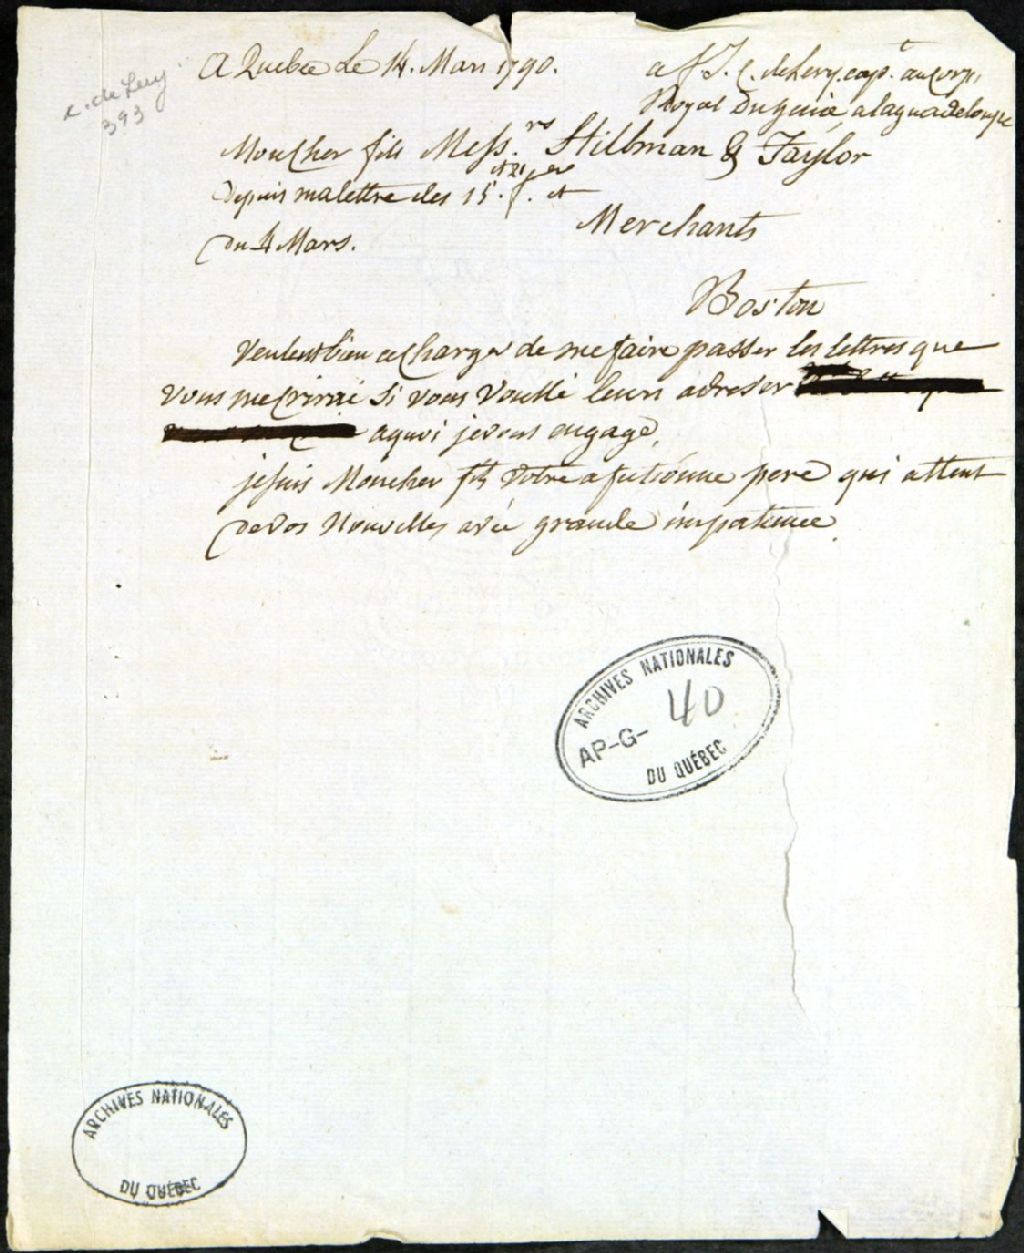 A Quebec Le 14. Mars 1790.
a f J. C. deLery cap.e au corps
Royal Du genie, a la guadeloupe
Ch. de Lery
393
Moncher fils Mess.rs Stillman & Taylor
Depuis malettre des 15. et
du 4 Mars.
Merchants
Boston
Veulent bien ce Charger de me faire passer les lettres que
vous mecrirai Si vous Voullé leurs adresser
aquoi je vous engage,
jesuis Moncher fils votre afectionne pere qui attent
de vos Nouvelles avec grande impatience.
ARCHIVES NATIONALES
AP-G- 40
DU QUÉBEC
ARCHIVES NATIONALES
DU QUÉBEC